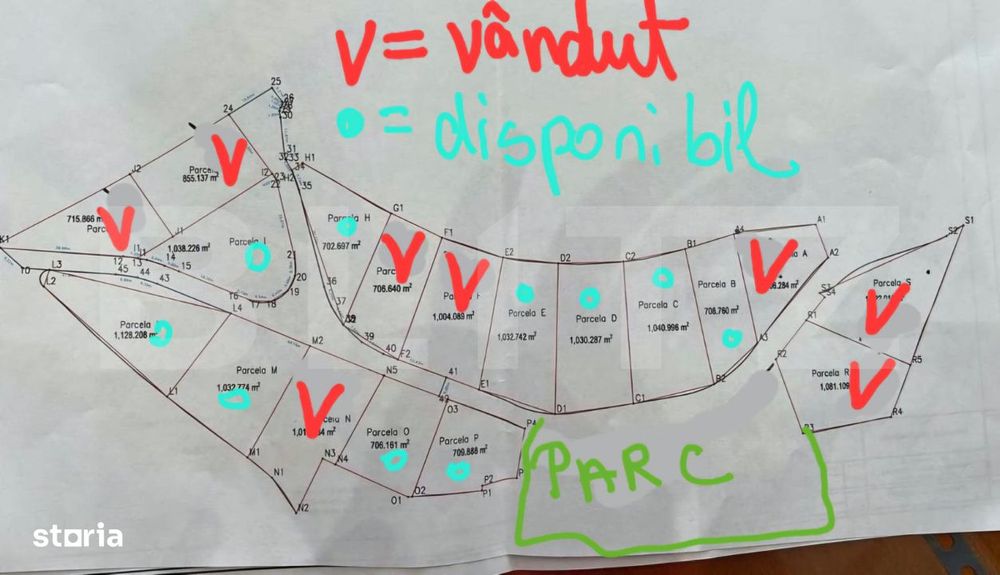 V = vândut
= disponibil
25
24
26
30
31
32 33 H1
34
H2
35
J2
Parcela
855.137 m²
I2
23
22
G1
715.866 m²
Parc
Parcela H
702.697 m²
K1
J1
1,038.226 m²
Parcela I
F1
I1
12 13 14 15
21
20
19
18
17
T6
L4
L3
L2
10
45 44 43
Parc
706.640 m²
1,004.089 m²
E2
D2
C2
B1
A1
A2
A
S1
S2
36
37
39
40
F2
Parcela E
1,032.742 m²
Parcela D
1,030.287 m²
Parcela C
1,040.996 m²
Parcela B
708.760 m²
.284 m²
S3
S4
Parcela S
R1
Parcela
1,128.208 m²
M2
A3
R2
R5
Parcela M
1,032.774 m²
N5
41
E1
B2
Parcela R
1,081.109
L1
O3
D1
C1
R4
R3
P4
N
Parcela O
706.161 m²
Parcela P
709.888 m²
M1
N1
N3 N4
N2
O1
O2
P2
P1
P
PARC
V
V
V
V
V
V
V
V
storia